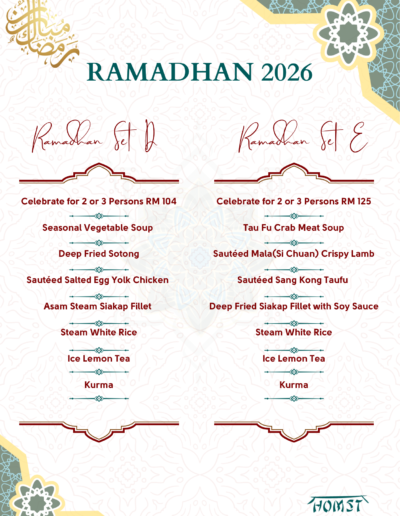 رمضان مبارك
RAMADHAN 2026
Ramadhan Set D
Celebrate for 2 or 3 Persons RM 104
Seasonal Vegetable Soup
Deep Fried Sotong
Sautéed Salted Egg Yolk Chicken
Asam Steam Siakap Fillet
Steam White Rice
Ice Lemon Tea
Kurma
Ramadhan Set E
Celebrate for 2 or 3 Persons RM 125
Tau Fu Crab Meat Soup
Sautéed Mala(Si Chuan) Crispy Lamb
Sautéed Sang Kong Taufu
Deep Fried Siakap Fillet with Soy Sauce
Steam White Rice
Ice Lemon Tea
Kurma
HOMST